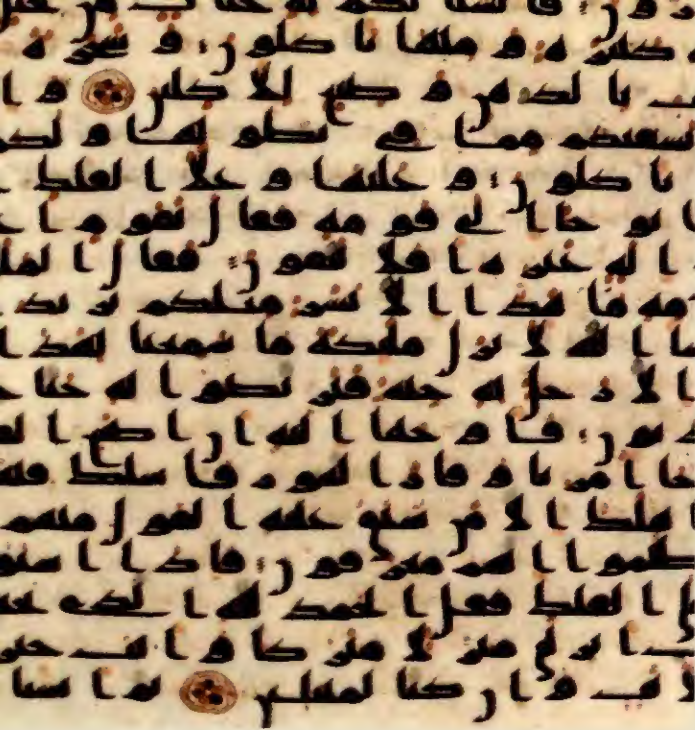 فانشانا لكم به جنت من نخيل
كثيرة ومنها تاكلون وشجرة
ت بالدهن وصبغ للاكلين وا
نسقيكم مما في بطونها ولكم
تاكلون وعليها وعلى الفلك
نوحا الى قومه فقال يقوم ا
اله غيره افلا تتقون فقال الملـ
قومه ما هذا الا بشر مثلكم يريد
شا الله لانزل ملئكة ما سمعنا بهذا
الا رجل به جنة فتربصوا به حتى
بون فاوحينا اليه ان اصنع الـ
جا امرنا وفار التنور فاسلك فيـ
واهلك الا من سبق عليه القول منهم
ظلموا انهم مغرقون فاذا استو
الفلك فقل الحمد لله الذي نجـ
انزلني منزلا مبركا وانت خيـ
لايت وان كنا لمبتلين ثم انشانا